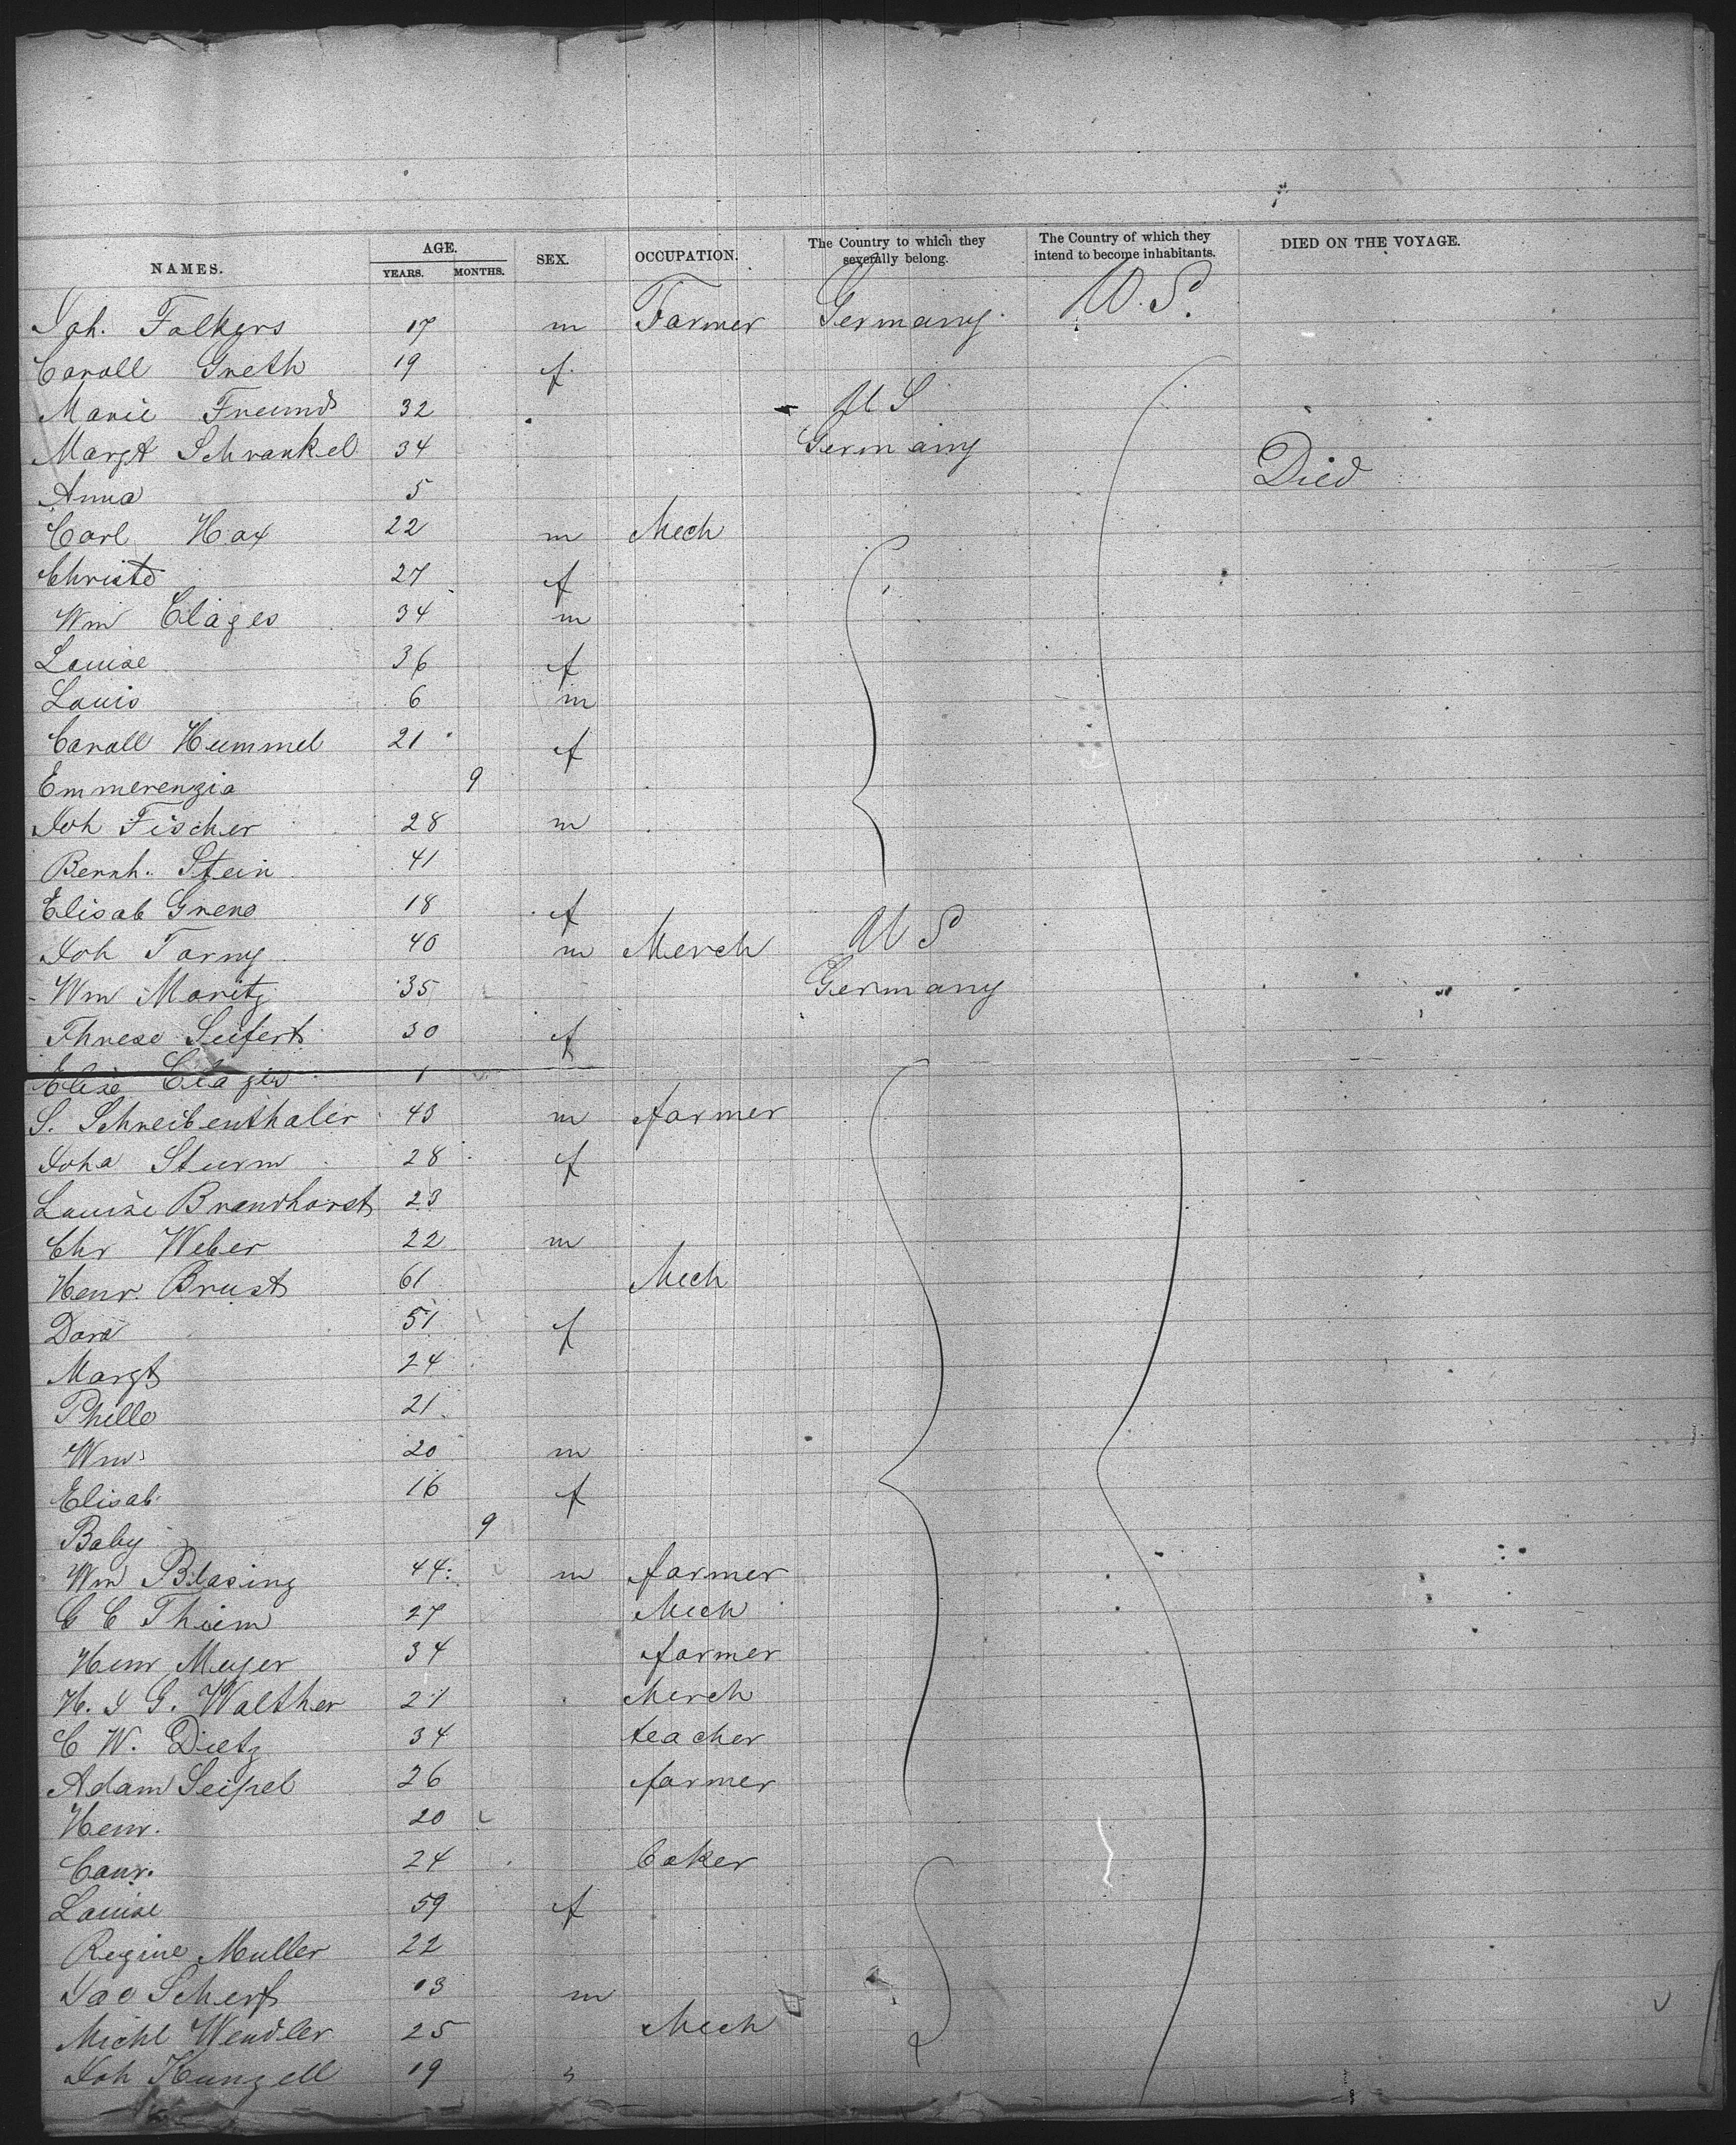 NAMES. AGE. YEARS. MONTHS. SEX. OCCUPATION. The Country to which they severally belong. The Country of which they intend to become inhabitants. DIED ON THE VOYAGE.
Joh. Folkers 17 m Farmer Germany. U.S.
Caroll Greth 19 f.
Marie Freund 32 U S
Margt Schrankel 34 Germany
Anna 5 Died
Carl Hax 22 m Mech
Christe 27 f
Wm Clages 34 m
Louise 36 f
Louis 6 m
Caroll Hummel 21 f
Emmerenzia 9
Joh Fischer 28 m
Bernh. Stein 41
Elisab Grens 18 f
Joh Torny 40 m Merch U S
Wm Moritz 35 Germany
Threse Seifert 30 f
Elise Clages 1
S. Schreibenthaler 43 m farmer
Joha Sturm 28 f
Louise Brandhorst 23
Chr Weber 22 m
Henr. Brust 61 Mech
Dora 51 f
Margt 24
Phille 21
Wm 20 m
Elisab. 16 f
Baby 9
Wm Blasing 44 m farmer
G C Thiem 27 Mech
Henr Meyer 34 farmer
H. J G. Walther 21 Merch
C W. Dietz 34 teacher
Adam Seipel 26 farmer
Henr. 20
Conr. 24 baker
Louise 59 f
Regine Muller 22
Jac Scherf 13 m
Michl Wendler 25 Mech
Joh Kunzell 19